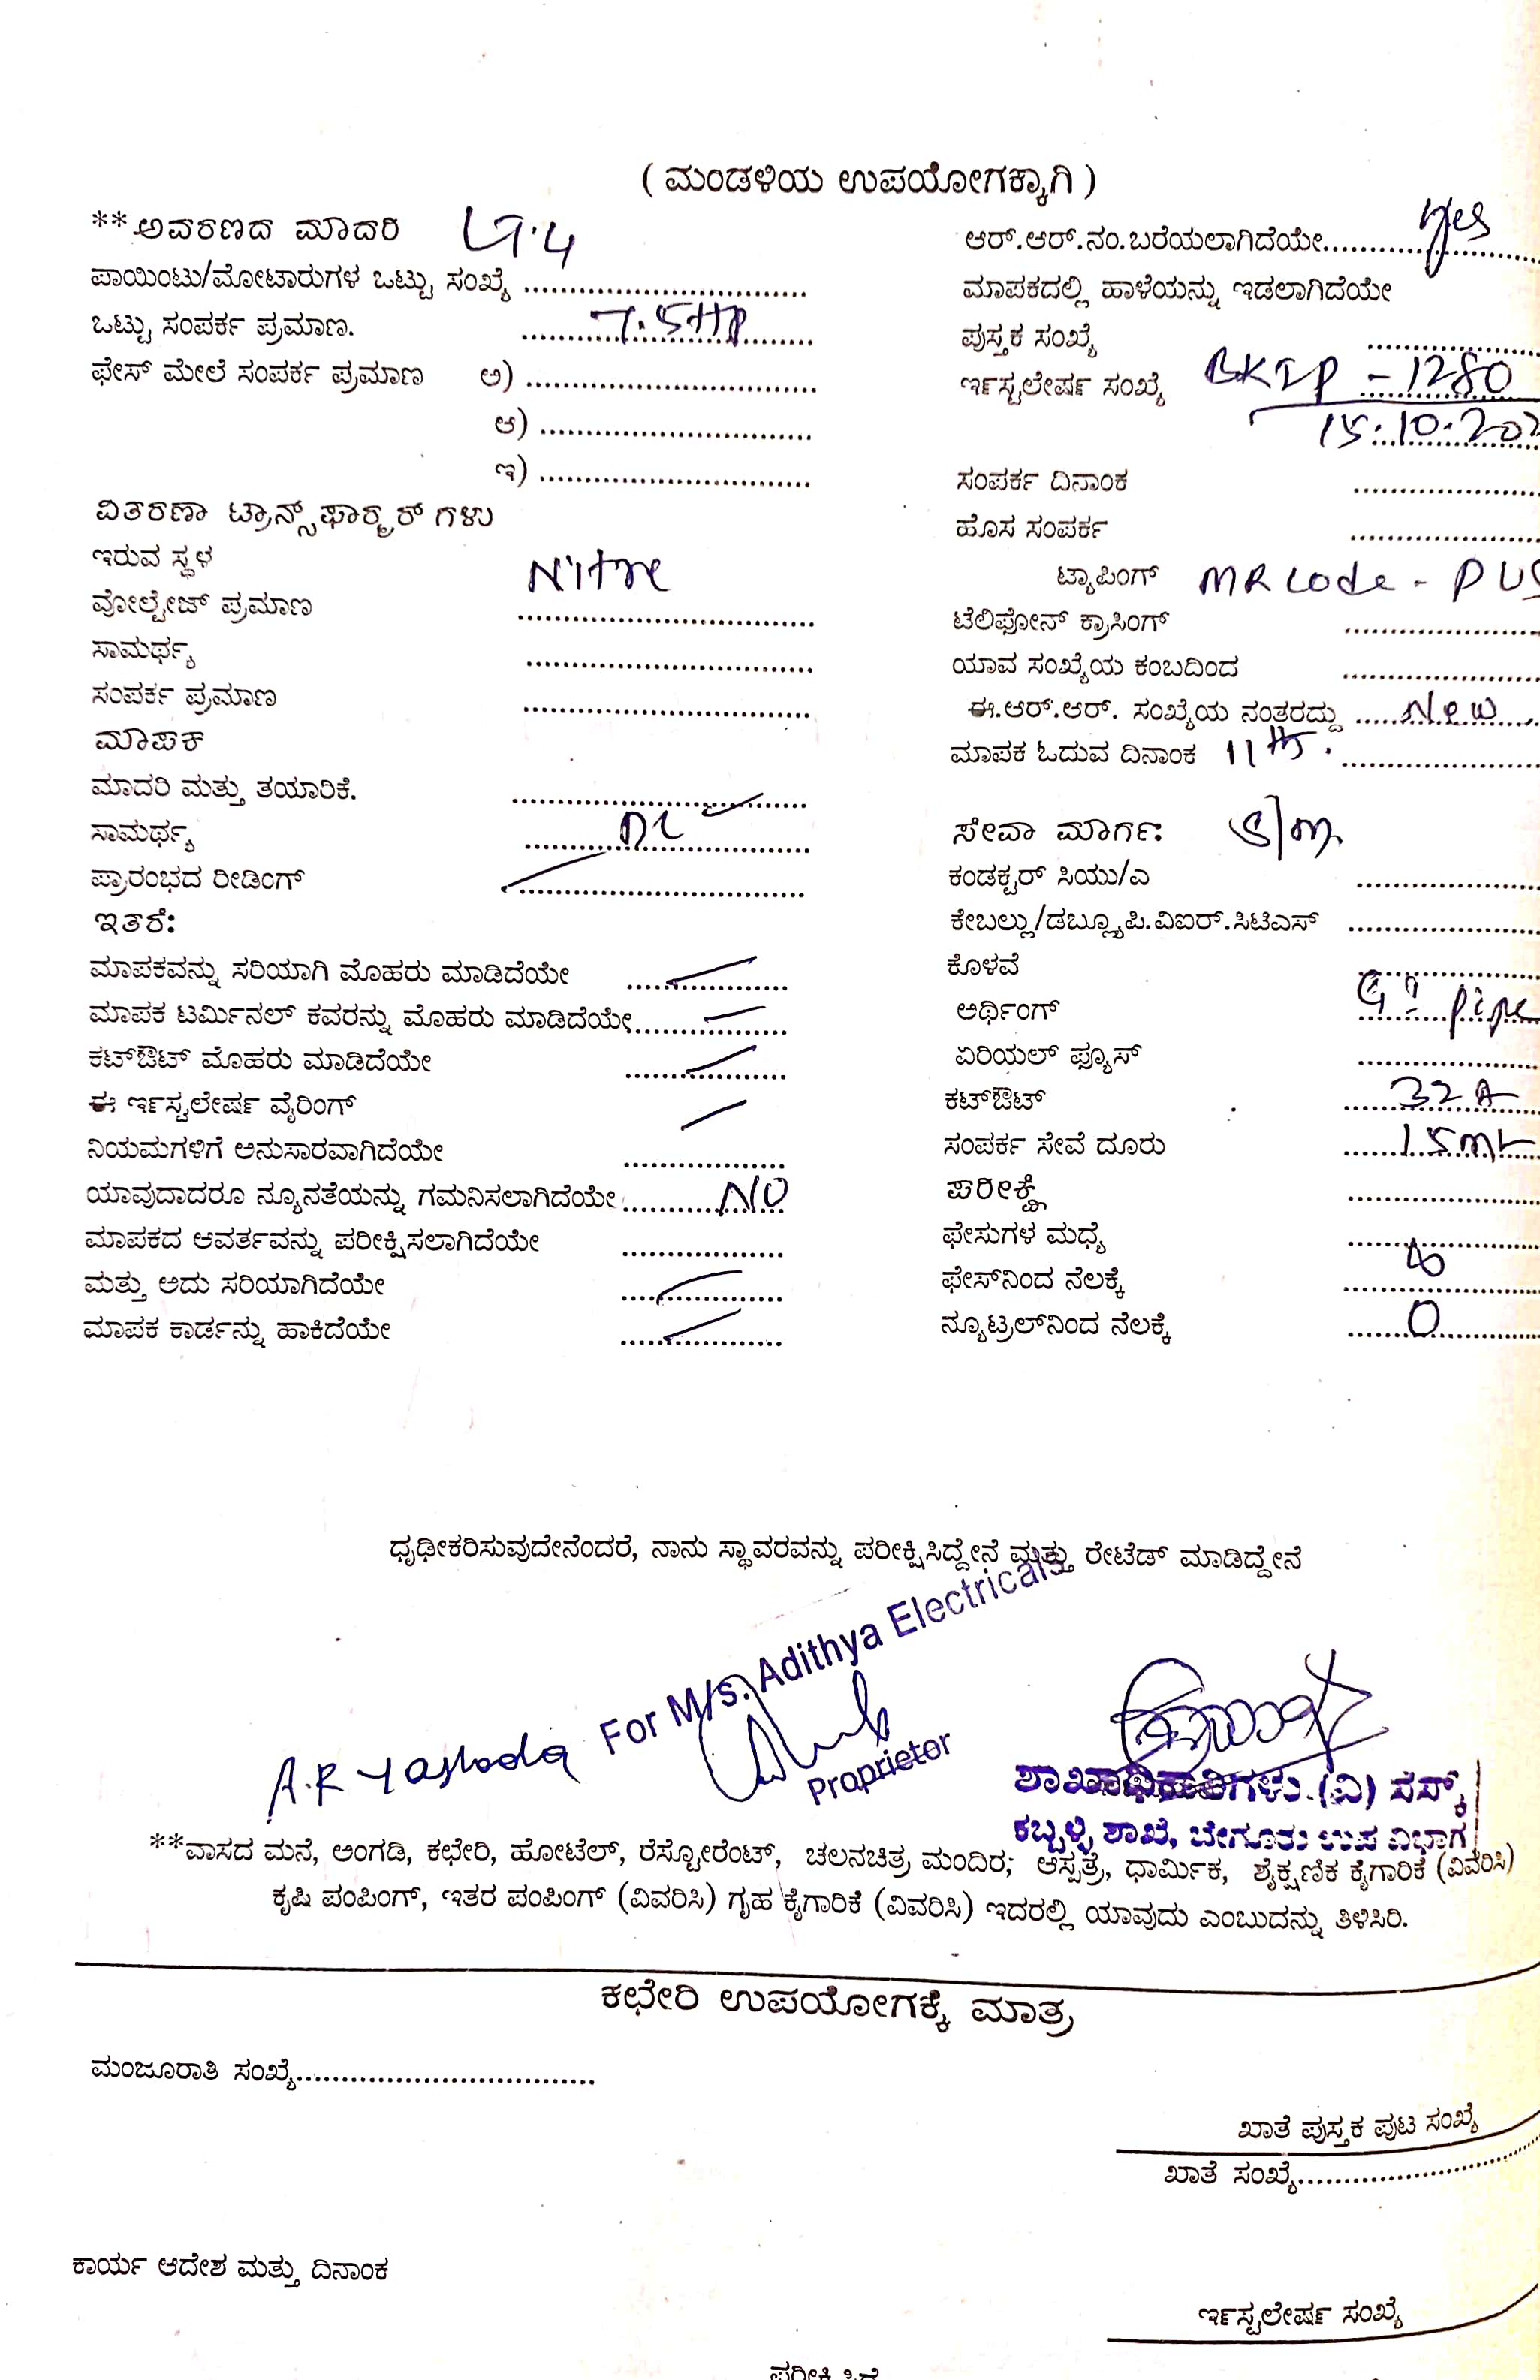 ( ಮಂಡಳಿಯ ಉಪಯೋಗಕ್ಕಾಗಿ )
**ಅವರಣದ ಮಾದರಿ LT.4
ಪಾಯಿಂಟು/ಮೋಟಾರುಗಳ ಒಟ್ಟು ಸಂಖ್ಯೆ ..............................
ಒಟ್ಟು ಸಂಪರ್ಕ ಪ್ರಮಾಣ. 7.5HP
ಫೇಸ್ ಮೇಲೆ ಸಂಪರ್ಕ ಪ್ರಮಾಣ ಅ) ..............................
ಆ) ..............................
ಇ) ..............................
ವಿತರಣಾ ಟ್ರಾನ್ಸ್‌ಫಾರ್ಮರ್ ಗಳು
ಇರುವ ಸ್ಥಳ
ವೋಲ್ಟೇಜ್ ಪ್ರಮಾಣ ..............................
ಸಾಮರ್ಥ್ಯ ..............................
ಸಂಪರ್ಕ ಪ್ರಮಾಣ ..............................
ಮಾಪಕ
ಮಾದರಿ ಮತ್ತು ತಯಾರಿಕೆ. ..............................
ಸಾಮರ್ಥ್ಯ ..............................
ಪ್ರಾರಂಭದ ರೀಡಿಂಗ್ ..............................
ಇತರೆ:
ಮಾಪಕವನ್ನು ಸರಿಯಾಗಿ ಮೊಹರು ಮಾಡಿದೆಯೇ ....................
ಮಾಪಕ ಟರ್ಮಿನಲ್ ಕವರನ್ನು ಮೊಹರು ಮಾಡಿದೆಯೇ....................
ಕಟ್‌ಔಟ್ ಮೊಹರು ಮಾಡಿದೆಯೇ ....................
ಈ ಇನ್‌ಸ್ಟಲೇಷನ್ ವೈರಿಂಗ್
ನಿಯಮಗಳಿಗೆ ಅನುಸಾರವಾಗಿದೆಯೇ ....................
ಯಾವುದಾದರೂ ನ್ಯೂನತೆಯನ್ನು ಗಮನಿಸಲಾಗಿದೆಯೇ NO
ಮಾಪಕದ ಆವರ್ತವನ್ನು ಪರೀಕ್ಷಿಸಲಾಗಿದೆಯೇ ....................
ಮತ್ತು ಅದು ಸರಿಯಾಗಿದೆಯೇ ....................
ಮಾಪಕ ಕಾರ್ಡನ್ನು ಹಾಕಿದೆಯೇ ....................
ಆರ್.ಆರ್.ನಂ.ಬರೆಯಲಾಗಿದೆಯೇ yes
ಮಾಪಕದಲ್ಲಿ ಹಾಳೆಯನ್ನು ಇಡಲಾಗಿದೆಯೇ
ಪುಸ್ತಕ ಸಂಖ್ಯೆ ....................
ಇನ್‌ಸ್ಟಲೇಷನ್ ಸಂಖ್ಯೆ BKIP - 1280
15.10.202
ಸಂಪರ್ಕ ದಿನಾಂಕ ....................
ಹೊಸ ಸಂಪರ್ಕ ....................
ಟ್ಯಾಪಿಂಗ್ MR Code -
ಟೆಲಿಫೋನ್ ಕ್ರಾಸಿಂಗ್ ....................
ಯಾವ ಸಂಖ್ಯೆಯ ಕಂಬದಿಂದ ....................
ಈ.ಆರ್.ಆರ್. ಸಂಖ್ಯೆಯ ನಂತರದ್ದು New
ಮಾಪಕ ಓದುವ ದಿನಾಂಕ 11th.
ಸೇವಾ ಮಾರ್ಗ:
ಕಂಡಕ್ಟರ್ ಸಿಯು/ಎ ....................
ಕೇಬಲ್ಲು/ಡಬ್ಲ್ಯೂಪಿ.ವಿಐರ್.ಸಿಟಿಎಸ್ ....................
ಕೊಳವೆ ....................
ಅರ್ಥಿಂಗ್ GI Pipe
ಏರಿಯಲ್ ಫ್ಯೂಸ್ ....................
ಕಟ್‌ಔಟ್ 32A
ಸಂಪರ್ಕ ಸೇವೆ ದೂರು 15mt
ಪರೀಕ್ಷೆ ....................
ಫೇಸುಗಳ ಮಧ್ಯೆ ....................
ಫೇಸ್‌ನಿಂದ ನೆಲಕ್ಕೆ ....................
ನ್ಯೂಟ್ರಲ್‌ನಿಂದ ನೆಲಕ್ಕೆ 0
ಧೃಢೀಕರಿಸುವುದೇನೆಂದರೆ, ನಾನು ಸ್ಥಾವರವನ್ನು ಪರೀಕ್ಷಿಸಿದ್ದೇನೆ ಮತ್ತು ರೇಟೆಡ್ ಮಾಡಿದ್ದೇನೆ
For M/s. Adithya Electricals
A.R Yashoda
Proprietor
ಶಾಖಾಧಿಕಾರಿಗಳು (ವಿ) ಸೆಸ್ಕ್
ಕಬ್ಬಳ್ಳಿ ಶಾಖೆ, ಬೇಗೂರು ಉಪ ವಿಭಾಗ
**ವಾಸದ ಮನೆ, ಅಂಗಡಿ, ಕಛೇರಿ, ಹೋಟೆಲ್, ರೆಸ್ಟೋರೆಂಟ್, ಚಲನಚಿತ್ರ ಮಂದಿರ; ಆಸ್ಪತ್ರೆ, ಧಾರ್ಮಿಕ, ಶೈಕ್ಷಣಿಕ ಕೈಗಾರಿಕೆ (ವಿವರಿಸಿ)
ಕೃಷಿ ಪಂಪಿಂಗ್, ಇತರ ಪಂಪಿಂಗ್ (ವಿವರಿಸಿ) ಗೃಹ ಕೈಗಾರಿಕೆ (ವಿವರಿಸಿ) ಇದರಲ್ಲಿ ಯಾವುದು ಎಂಬುದನ್ನು ತಿಳಿಸಿರಿ.
ಕಛೇರಿ ಉಪಯೋಗಕ್ಕೆ ಮಾತ್ರ
ಮಂಜೂರಾತಿ ಸಂಖ್ಯೆ...................................
ಖಾತೆ ಪುಸ್ತಕ ಪುಟ ಸಂಖ್ಯೆ
ಖಾತೆ ಸಂಖ್ಯೆ..............................
ಕಾರ್ಯ ಆದೇಶ ಮತ್ತು ದಿನಾಂಕ
ಇನ್‌ಸ್ಟಲೇಷನ್ ಸಂಖ್ಯೆ